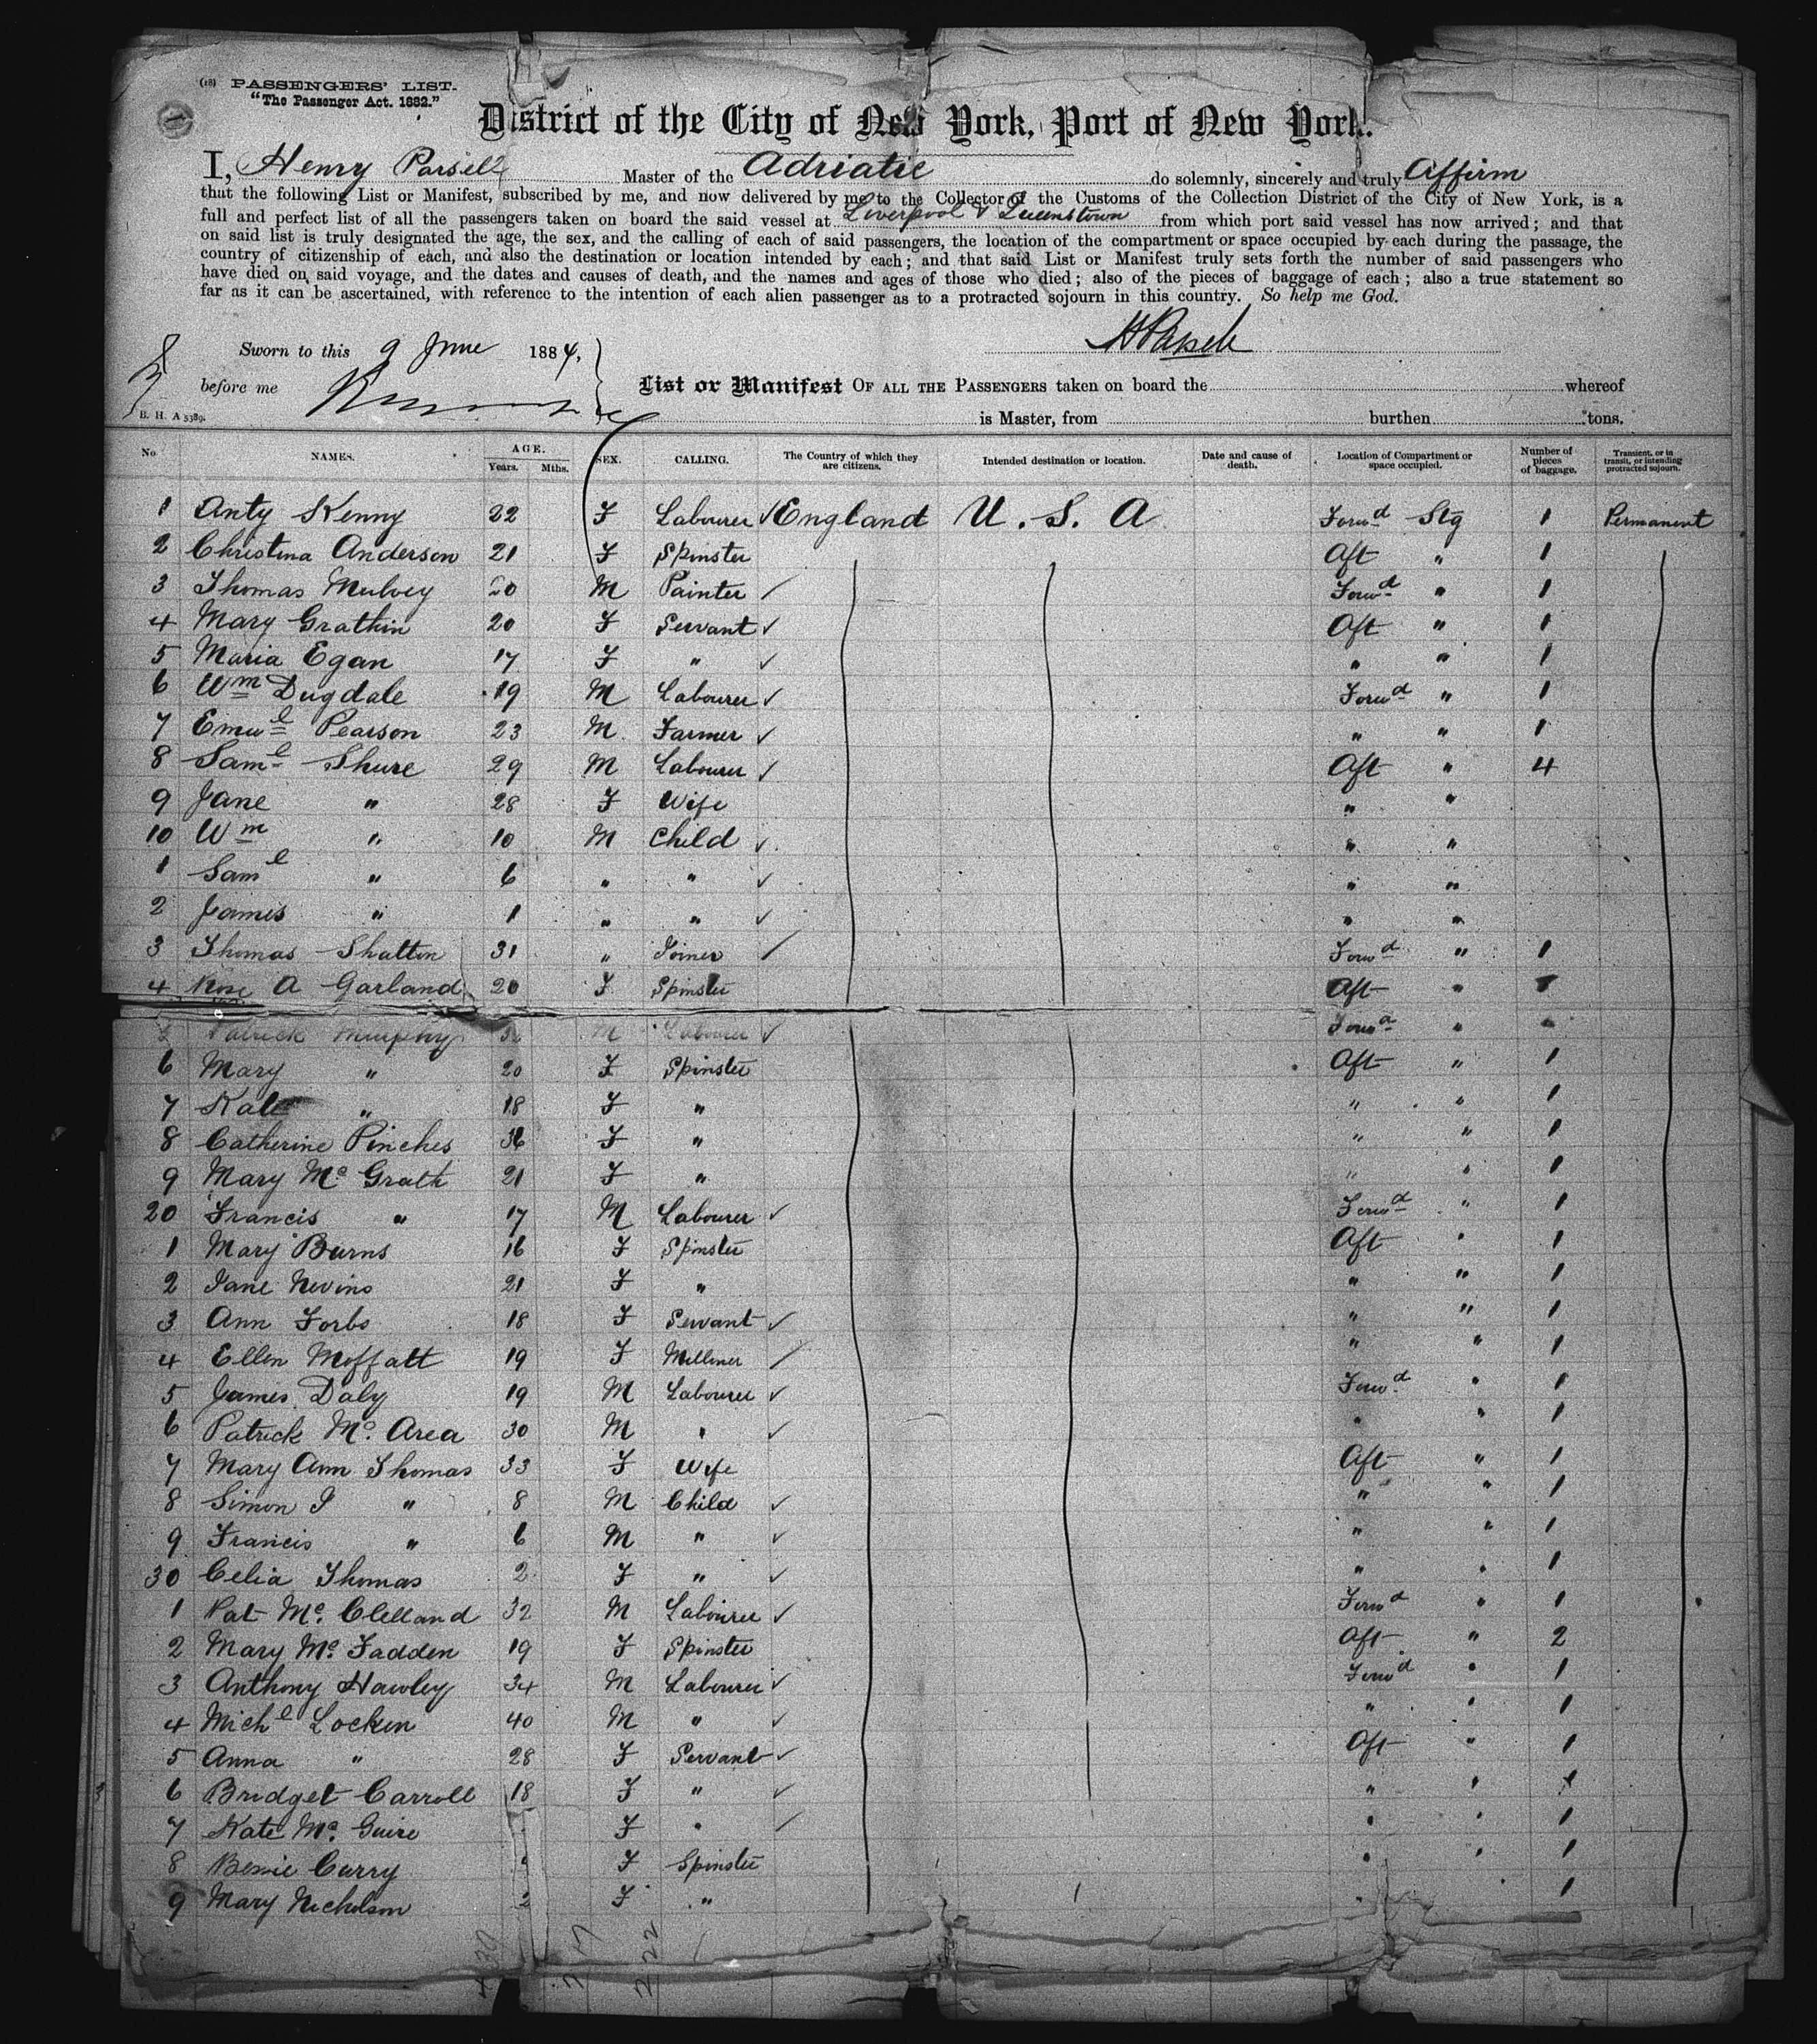 (18) PASSENGERS' LIST.
"The Passenger Act. 1882."
District of the City of New York, Port of New York.
I, Henry Parsell Master of the Adriatic do solemnly, sincerely and truly Affirm
that the following List or Manifest, subscribed by me, and now delivered by me to the Collector of the Customs of the Collection District of the City of New York, is a
full and perfect list of all the passengers taken on board the said vessel at Liverpool & Queenstown from which port said vessel has now arrived; and that
on said list is truly designated the age, the sex, and the calling of each of said passengers, the location of the compartment or space occupied by each during the passage, the
country of citizenship of each, and also the destination or location intended by each; and that said List or Manifest truly sets forth the number of said passengers who
have died on said voyage, and the dates and causes of death, and the names and ages of those who died; also of the pieces of baggage of each; also a true statement so
far as it can be ascertained, with reference to the intention of each alien passenger as to a protracted sojourn in this country. So help me God.
HParsell
Sworn to this 9 June 1884,
before me
List or Manifest OF ALL THE PASSENGERS taken on board the whereof
B. H. A 5389.
is Master, from burthen tons.
No NAMES. AGE. Years. Mths. SEX. CALLING. The Country of which they are citizens. Intended destination or location. Date and cause of death. Location of Compartment or space occupied. Number of pieces of baggage. Transient, or in transit, or intending protracted sojourn.
1 Anty Kenny 22 F Labourer ✓ England U.S.A Forwd Stg 1 Permanent
2 Christina Anderson 21 F Spinster Aft " 1
3 Thomas Mulvey 20 M Painter ✓ Forwd " 1
4 Mary Grathin 20 F Servant ✓ Aft " 1
5 Maria Egan 17 F " ✓ " " 1
6 Wm Dugdale 19 M Labourer ✓ Forwd " 1
7 Emul Pearson 23 M Farmer ✓ " " 1
8 Saml Shure 29 M Labourer ✓ Aft " 4
9 Jane " 28 F Wife " "
10 Wm " 10 M Child ✓ " "
1 Saml " 6 " " ✓ " "
2 James " 1 " " ✓ " "
3 Thomas Shatton 31 " Joiner ✓ Forwd " 1
4 Rose A Garland 20 F Spinster Aft " 1
Patrick Murphy M Labourer ✓ Forwd "
6 Mary " 20 F Spinster Aft " 1
7 Kate " 18 F " " " 1
8 Catherine Pinches 36 F " " " 1
9 Mary Mc Grath 21 F " " " 1
20 Francis " 17 M Labourer ✓ Forwd " 1
1 Mary Burns 16 F Spinster Aft " 1
2 Jane Nevins 21 F " " " 1
3 Ann Forbs 18 F Servant ✓ " " 1
4 Ellen Moffatt 19 F Milliner ✓ " " 1
5 James Daly 19 M Labourer ✓ Forwd " 1
6 Patrick Mc Area 30 M " ✓ " " 1
7 Mary Ann Thomas 33 F Wife Aft " 1
8 Simon J " 8 M Child ✓ " " 1
9 Francis " 6 M " ✓ " " 1
30 Celia Thomas 2 F " ✓ " " 1
1 Pat Mc Clelland 32 M Labourer ✓ Forwd " 1
2 Mary Mc Fadden 19 F Spinster Aft " 2
3 Anthony Hawley 34 M Labourer ✓ Forwd " 1
4 Michl Locken 40 M " ✓ " " 1
5 Anna " 28 F Servant ✓ Aft " 1
6 Bridget Carroll 18 F " ✓ " " 1
7 Kate Mc Guire F " ✓ " " 1
8 Bessie Curry F Spinster " " 1
9 Mary Nicholson 2 F " " 1
222